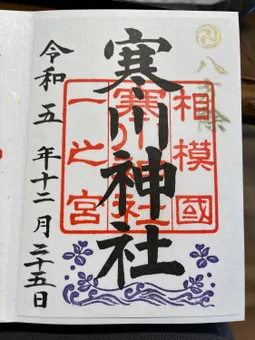 八方除
相模國
一之宮
寒川神社
寒川神社
令和五年十二月二十五日